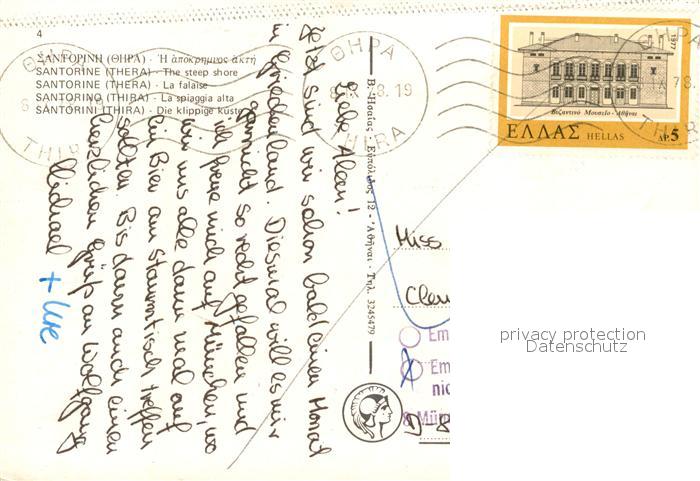 4
ΣΑΝΤΟΡΙΝΗ (ΘΗΡΑ) · Ἡ ἀπόκρημνος ἀκτή
SANTORINE (THERA) · The steep shore
SANTORINE (THERA) · La falaise
SANTORINO (THIRA) · La spiaggia alta
SANTORINI (THIRA) · Die klippige küste
ΘΗΡΑ
THIRA
ΘΗΡΑ
8. 78.19
THIRA
1977
Βυζαντινό Μουσείο - Ἀθῆναι
ΕΛΛΑΣ HELLAS ΔΡ.5
Liebe Aleen!
Jetzt sind wir schon bald einen Monat
in Griechenland. Diesmal will es mir
garnicht so recht gefallen und
ich freue mich auf München, wo
wir uns alle dann mal auf
ein Bier am Stammtisch treffen
sollten. Bis dann auch einen
herzlichen Gruß an Wolfgang
Michael + Ute
Εὐπόλιδος 12 - Ἀθῆναι - Τηλ. 3245479
Miss
Em
Em
nic
8 Mün
D 8
privacy protection
Datenschutz